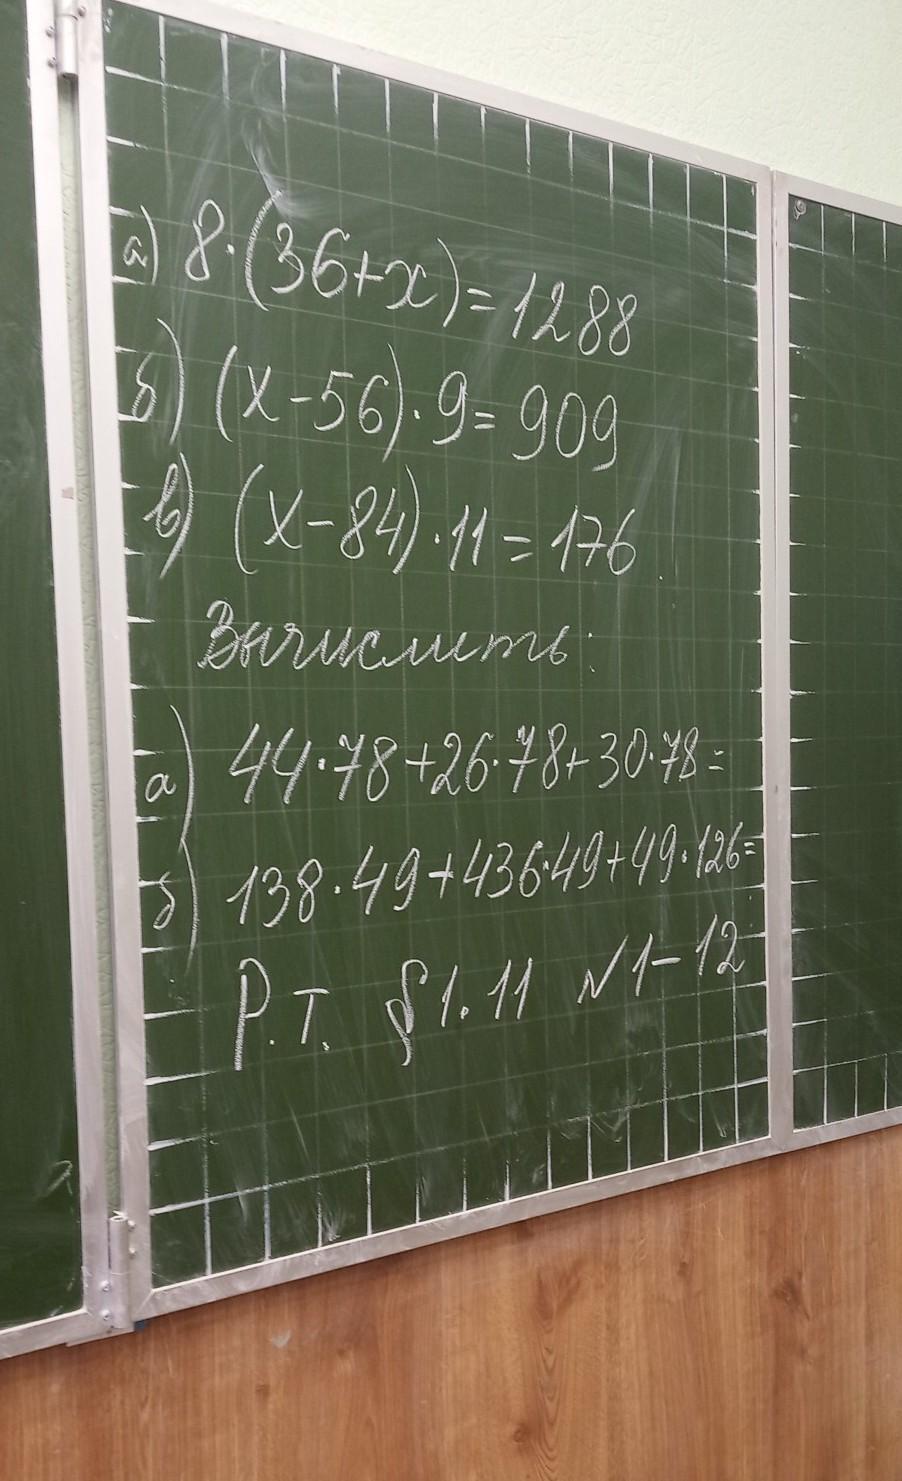 а) 8·(36+x)=1288
б) (x-56)·9=909
в) (x-84)·11=176
Вычислить:
а) 44·78+26·78+30·78=
б) 138·49+436·49+49·126=
Р.Т. §1.11 N1-12